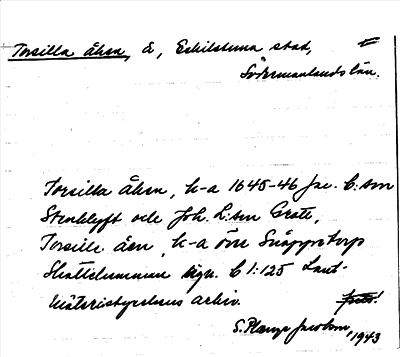 Torsilla åhsn, å, Eskilstuna stad, =
Södermanlands län.
Torsilla Åhsn, k-a 1645-46 Jac. C:son
Stenklyft och Joh. L:son Grote,
Torsille åen, k-a över Snäpprstorp
Skattehemman C 1:125 Lant-
mäteristyrelsens arkiv.
S. Plenge Jacobson, 1943